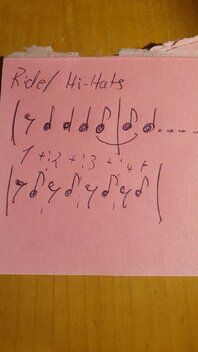 Ride/ Hi-Hats
1 + 2 + 3 + 4 +